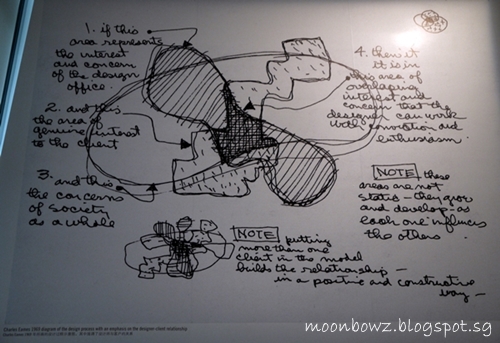 1. if this
area represents
the interest
and concern
of the design
office.
2. and this
the area of
genuine interest
to the client
3. and this
the concerns
of society
as a whole
4. then it
it is in
this area of
overlapping
interest and
concern that the
designer can work
with conviction and
enthusiasm.
NOTE these
areas are not
static – they grow
and develop – as
each one influences
the others.
NOTE putting
more than one
client in the model
builds the relationship –
in a positive and constructive
way –
Charles Eames 1969 diagram of the design process with an emphasis on the designer-client relationship.
moonbowz.blogspot.sg